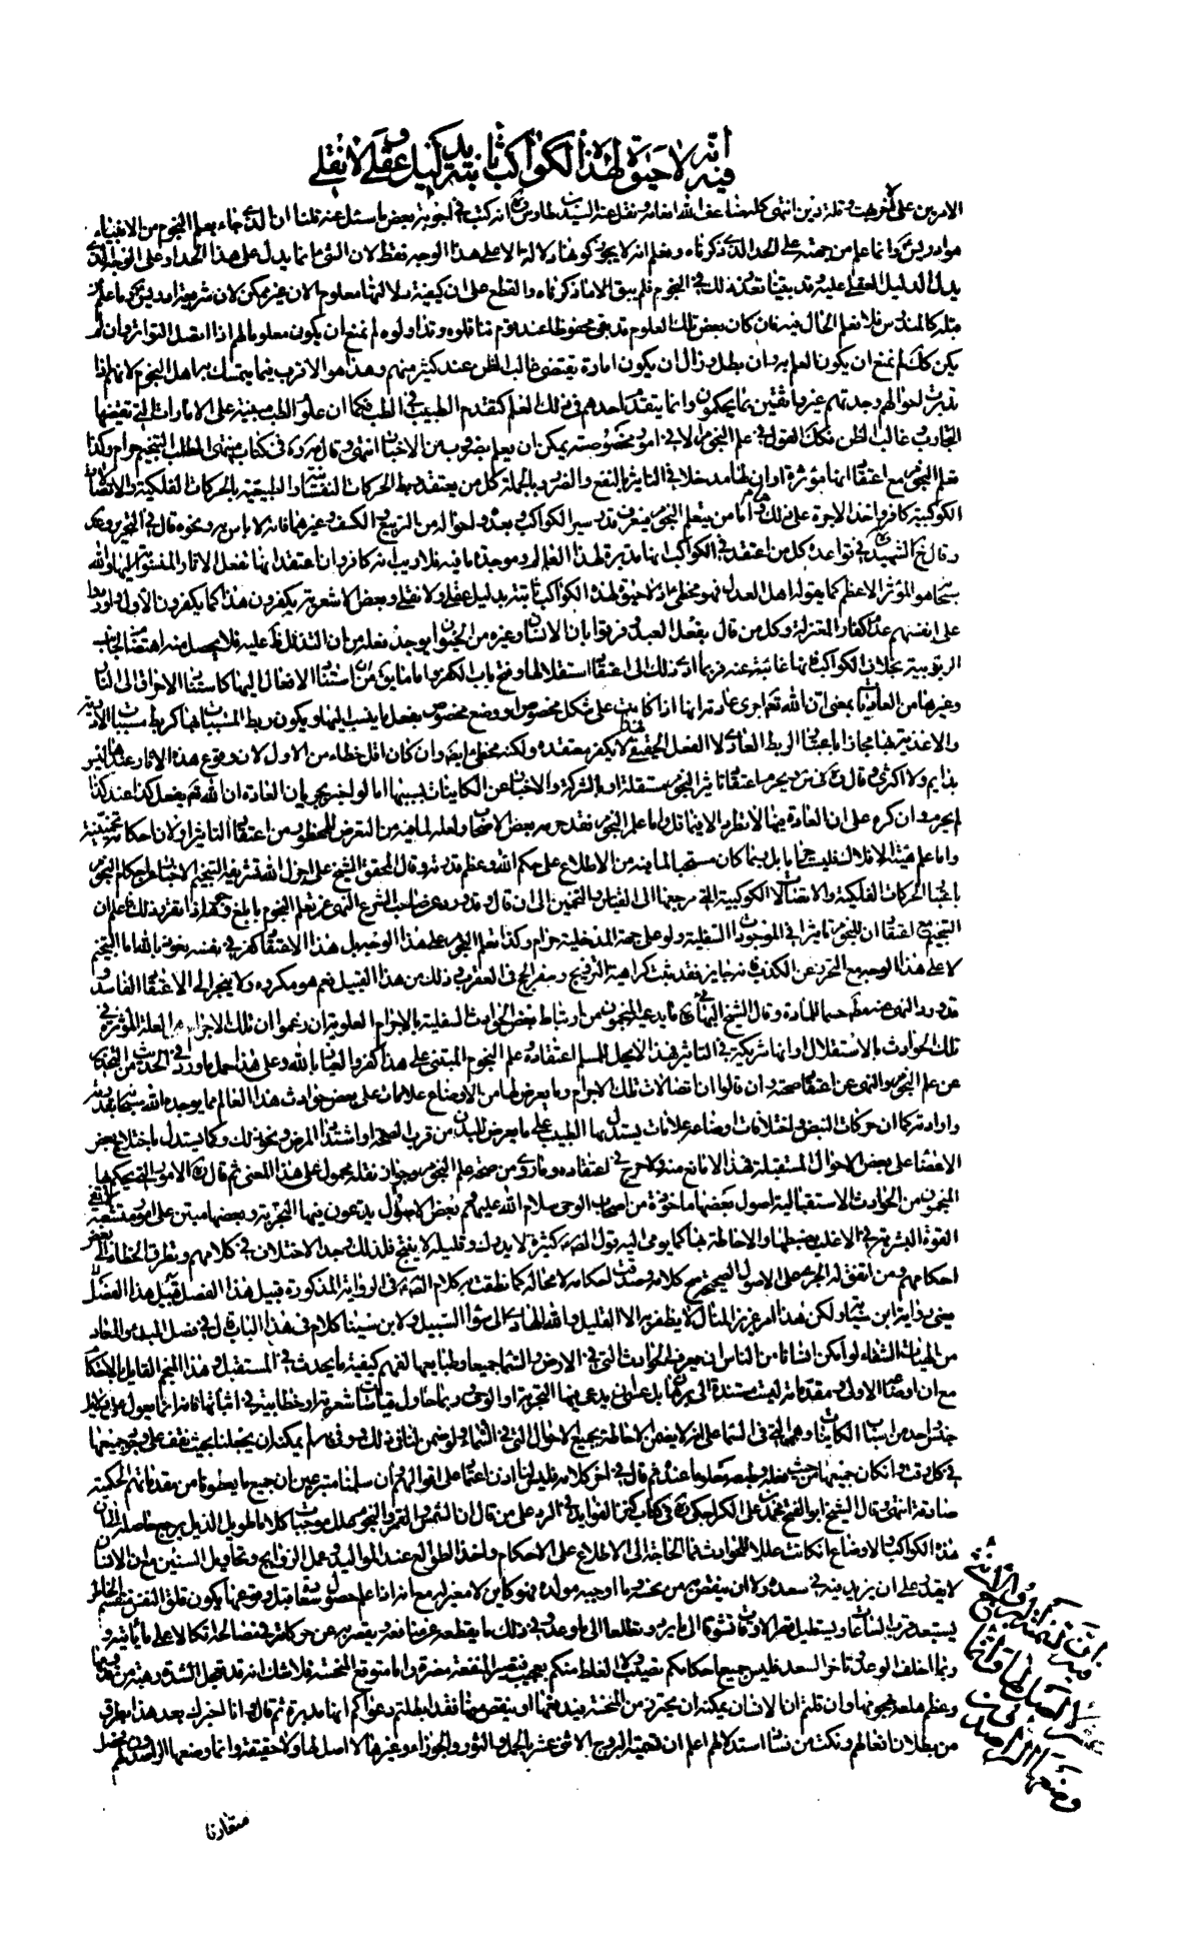 فيه انه لا حيوة لهذه الكواكب ثابتة بدليل عقلي ولا نقلي
الامرين على انتهى كلامهما عفا الله عنهما نقل عن السيد بن طاوس انه كتب في اجوبة بعض ما سئل عنه قلنا ان الذي جاء بعلم النجوم من الانبياء
هو ادريس وانما علم من جهته على الحد الذي ذكرناه ونعلم انه لا يجوز كونها دلالة الا على هذا الوجه فقط لان الشئ انما يدل على هذا الحد او على الوجه الذي
يدل الدليل العقلي عليه وقد بينا تعذر ذلك في النجوم فلم يبق الا ما ذكرناه والقطع على ان كيفية دلالتها معلوم الان غير ممكن لان شريعة ادريس وما علم من
قبله كالمندرس فلا نعلم الحال فيه فان كان بعض تلك العلوم قد بقى محفوظا عند قوم تناقلوه وتداولوه لم نمنع ان يكون معلوما لهم اذا اتصل التواتر وان لم
يكن كك لم نمنع ان يكون العلم به وان بطل وزال ان يكون امارة يقتضي غالب الظن عند كثير منهم وهذا هو الاقرب فيما يتمسك به اهل النجوم لانهم اذا
تدبرت احوالهم وجدتهم غير واثقين بما يحكمون وانما يتقدم احدهم في ذلك العلم كتقدم الطبيب في الطب فكما ان علوم الطب مبنية على الامارات التي تقتضيها
التجارب غالب الظن فكك القول في علم النجوم الا في امور مخصوصة يمكن ان يعلم بضروب من الاخبار انتهى وقال في كتاب منتهى المطلب التنجيم حرام وكذا
تعلم النجوم مع اعتقاد انها مؤثرة او ان لها مدخلا في التاثير بالنفع والضر وبالجملة كل من يعتقد ربط الحركات النفسانية والطبيعية بالحركات الفلكية والاتصالات
الكوكبية كافر واخذ الاجرة على ذلك حرام واما من يتعلم النجوم فيعرف قدر سير الكواكب وبعده واحواله من التربيع والكسف وغيرهما فانه لا باس به ونحوه قال في التحرير وعد
وقال الشهيد في قواعده كل من اعتقد في الكواكب انها مدبرة لهذا العالم وموجدة ما فيه فلا ريب انه كافر وان اعتقد انها تفعل الاثار المنسوبة اليها والله
سبحانه هو المؤثر الاعظم كما يقوله اهل العدل فهو مخطئ اذ لا حيوة لهذه الكواكب ثابتة بدليل عقلي ولا نقلي وبعض الاشعرية يكفرون هذا كما يكفرون الاول واوردوا
على انفسهم عدم اكفار المعتزلة وكل من قال بفعل العبد وفرقوا بان الانسان وغيره من الحيوان يوجد فعله مع ان التذلل ظاهر عليه فلا يحصل منه اهتضام لجانب
الربوبية بخلاف الكواكب فانها غائبة عنه فربما ادى ذلك الى اعتقاد استقلالها وفتح باب الكفر واما ما يق من ان استناد الافعال اليها كاستناد الاحراق الى النار
وغيرها من العاديات بمعنى ان الله تعم اجرى عادته انها اذا كانت على شكل مخصوص او وضع مخصوص يفعل ما ينسب اليها ويكون ربط المسببات بها كربط مسببات الادوية
والاغذية بها مجازا باعتبار الربط العادي لا الفعل الحقيقي فهذا لا يكفر معتقده ولكنه مخطئ ايضا وان كان اقل خطاء من الاول لان وقوع هذه الاثار عندها ليس
بدايم ولا اكثري وقال في س ويحرم اعتقاد تاثير النجوم مستقلة او بالشركة والاخبار عن الكاينات بسببها اما لو اخبر بجريان العادة ان الله تعم يفعل كذا عند كذا
لم يحرم وان كره على ان العادة فيها لا تطرد الا فيما قل واما علم النجوم فقد حرمه بعض الاصحاب ولعله لما فيه من التعرض للمحظور من اعتقاد التاثير او لان احكامه تخمينية
واما علم هيئة الافلاك فليس حراما بل ربما كان مستحبا لما فيه من الاطلاع على حكم الله وعظم قدرته وقال المحقق الشيخ علي اجزل الله تشريفه التنجيم الاخبار عن احكام النجوم
باعتبار الحركات الفلكية والاتصالات الكوكبية التي مرجعها الى القياس والتخمين الى ان قال وقد ورد عن صاحب الشرع النهي عن تعلم النجوم بابلغ وجوهه اذا تقرر ذلك فاعلم ان
التنجيم مع اعتقاد ان للنجوم تاثيرا في الموجودات السفلية ولو على جهة المدخلية حرام وكذا تعلم النجوم على هذا الوجه بل هذا الاعتقاد كفر في نفسه نعوذ بالله اما التنجيم
لا على هذا الوجه مع التحرز عن الكذب فانه جايز فقد ثبت كراهية التزويج وسفر الحج في العقرب وذلك من هذا القبيل نعم هو مكروه ولا ينجر الى الاعتقاد الفاسد و
قد ورد النهي عنه مطلقا حسما للمادة وقال الشيخ البهائي ما يدعيه المنجمون من ارتباط بعض الحوادث السفلية بالاجرام العلوية ان زعموا ان تلك الاجرام هي العلة المؤثرة في
تلك الحوادث بالاستقلال او انها شريكة في التاثير فهذا لا يحل للمسلم اعتقاده وعلم النجوم المبتني على هذا كفر والعياذ بالله وعلى هذا حمل ما ورد في الحديث من التحذير
عن علم النجوم والنهي عن اعتقاد صحته وان قالوا ان اتصالات تلك الاجرام وما يعرض لها من الاوضاع علامات على بعض حوادث هذا العالم مما يوجده الله سبحانه بقدرته
وارادته كما ان حركات النبض واختلافات اوضاعه علامات يستدل بها الطبيب على ما يعرض للبدن من قرب الصحة او اشتداد المرض ونحو ذلك وكما يستدل باختلاج بعض
الاعضاء على بعض الاحوال المستقبلة فهذا لا مانع منه ولا حرج في اعتقاده وما روى من صحة علم النجوم وجواز نقله محمول على هذا المعنى ثم قال الامور التي يحكم بها
المنجمون من الحوادث الاستقبالية اصول بعضها ماخوذة من اصحاب الوحي سلام الله عليهم وبعض الاصول يدعون فيها التجربة وبعضها مبتن على امور متشعبة لا تفي
القوة البشرية في الاغلب بضبطها والاحاطة بها كما يومي اليه قول الصادق كثيره لا يدرك وقليله لا ينتج فلذلك وجد الاختلاف في كلامهم وتطرق الخطاء الى بعض
احكامهم ومن اتفق له الجري على الاصول الصحيحة صح كلامه وصدقت احكامه لا محالة كما نطقت به كلام الصادق في الرواية المذكورة قبيل هذا الفصل
يعني رواية ابن سيابة ولكن هذا امر عزيز المنال لا يظفر به الا القليل والله الهادي الى سواء السبيل ولابن سينا كلام في هذا الباب قال في فصل المبدء والمعاد
من الهيات الشفاء لو امكن انسانا من الناس ان يعرف الحوادث التي في الارض والسماء جميعا وطبايعها لفهم كيفية ما يحدث في المستقبل وهذا المنجم القايل بالاحكام
مع ان اوضاعه الاولى ومقدماته ليست مستندة الى برهان بل عسى ان يدعى فيها التجربة او الوحي وربما حاول قياسات شعرية او خطابية في اثباتها فانه انما يعول على دلايل
جنس واحد من اسباب الكاينات وهي التي في السماء على انه لا يضمن الاحاطة بجميع الاحوال التي في السماء ولو ضمن لنا في ذلك ووفى به لم يمكنه ان يجعلنا بحيث نقف على وجود جميعها
في كل وقت وان كان جميعها من حيث فعله وطبعه معلوما عنده ثم قال في اخر كلامه فليس لنا اذن اعتماد على اقوالهم وان سلمنا متبرعين ان جميع ما يعطونا من مقدماتهم الحكمية
صادقة انتهى وقال الشيخ ابو الفتح محمد بن علي الكراجكي في كتاب كنز الفوايد في الرد على من قال ان الشمس والقمر والنجوم علل موجبات كلاما طويل الذيل يرجع حاصله الى ان
هذه الكواكب والاوضاع ان كانت عللا للحوادث فما الحاجة الى الاطلاع على الاحكام واخذ الطوالع عند المواليد وعمل الزوايج وتحاويل السنين مع ان الانسان
لا يقدر على ان يزيد فيه في سعده ولا ان ينقص به من نحسه وما اوجبه مولده فهو كاين لا مغير له مع انه اذا علم حصول سعادة قبل وقوعها يكون قلق النفس منقسم الخاطر
يستبعد قرب الساعات ويستطيل قصر الاوقات تشوقا الى ما يرد وتطلعا الى ما وعد وفي ذلك ما يقطعه عن منافعه ويقصر به عن حركاته في مصالحه اتكالا على ما ياتيه و
ربما اخلف الوعد وتاخر السعد فليس جميع احكامكم تصيب ولا الغلط منكم بعجيب فتصير المنفعة مضرة واما متوقع المنحسة فلا شك انه قد تعجل الشدة رهبة من قدومها
وعظم هلعه بهجومها وان قلتم ان الانسان يمكنه ان يحترز من المنحسة فيدفعها او ينقص منها فقد ابطلتم دعواكم انها مدبرة ثم قال وانا اخبرك بعد هذا بطرف
من بطلان افعالهم ونكت من فساد استدلالهم اعلم ان تسمية البروج الاثنى عشر بالحمل والثور والجوزاء وغيرها لا اصل لها ولا حقيقة وانما وضعها الراصدون لهم
متعارفا